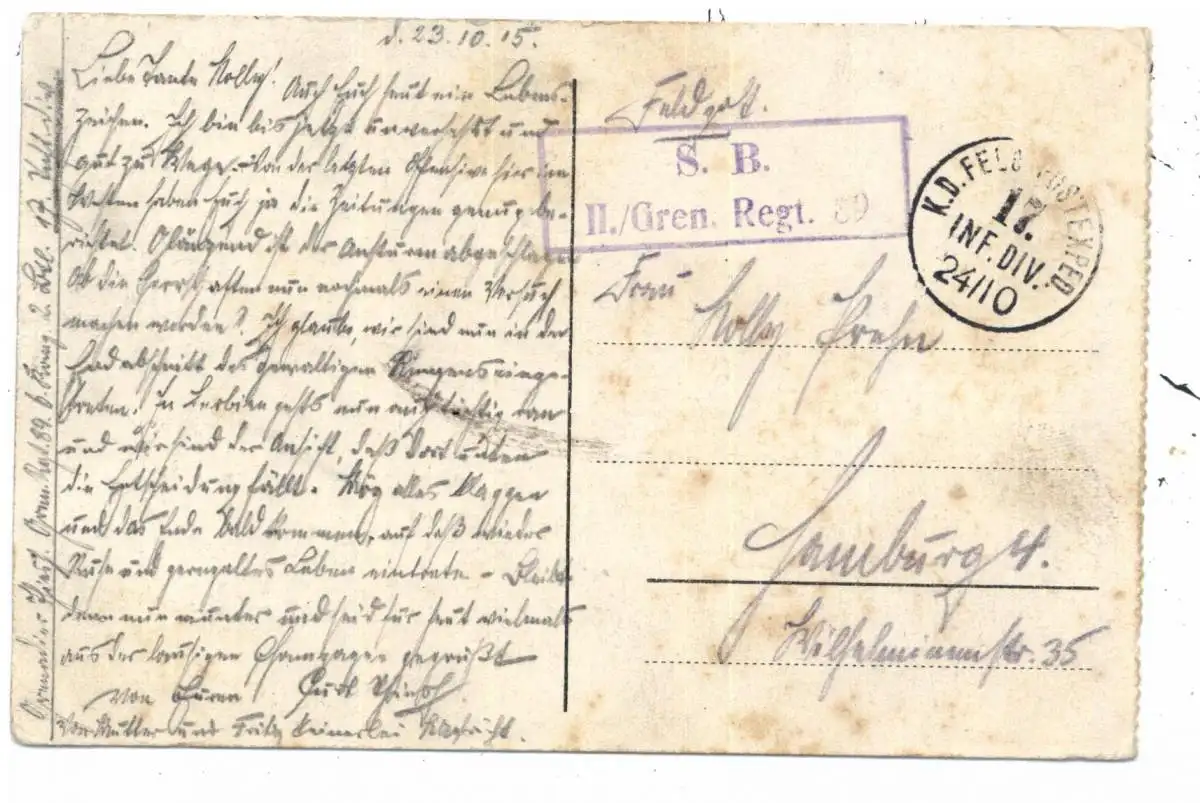 d. 23.10.15.
Liebe Tante Nolly! Auch Euch heut ein Lebens-
zeichen. Ich bin bis jetzt unversehrt und
gut zu Wege. – Von der letzten Offensive hier im
Westen haben Euch ja die Zeitungen genug be-
richtet. Glänzend ist der Ansturm abgeschlagen
Ob die Herrschaften nun nochmals einen Versuch
machen werden? Ich glaube, wir sind nun in den
Endabschnitt des gewaltigen Ringens einge-
treten. In Serbien gehts nun auch tüchtig ran
und wir sind der Ansicht, daß dort unten
die Entscheidung fällt. Mög alles klappen
und das Ende bald kommen, auf daß wieder
Ruhe und geregeltes Leben eintrete – Bleibt
denn nun munter und seid für heut vielmals
aus der lausigen Champagne gegrüßt
von Eurem Curt
Von Mutter und Fritz keinerlei Nachricht.
Grenadier Gren. Regt. 89. 6. Komp. 2. Btl. 17. Inft. Div.
Feldpost.
S. B.
II./Gren. Regt. 89
K.D. FELDPOSTEXPED
17.
INF. DIV.
24/10
Frau
Nolly Prehn
Hamburg 4.
Wilhelminenstr. 35